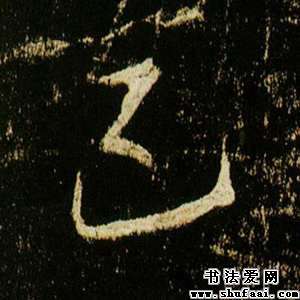 已
书法爱网
www.shufaai.com